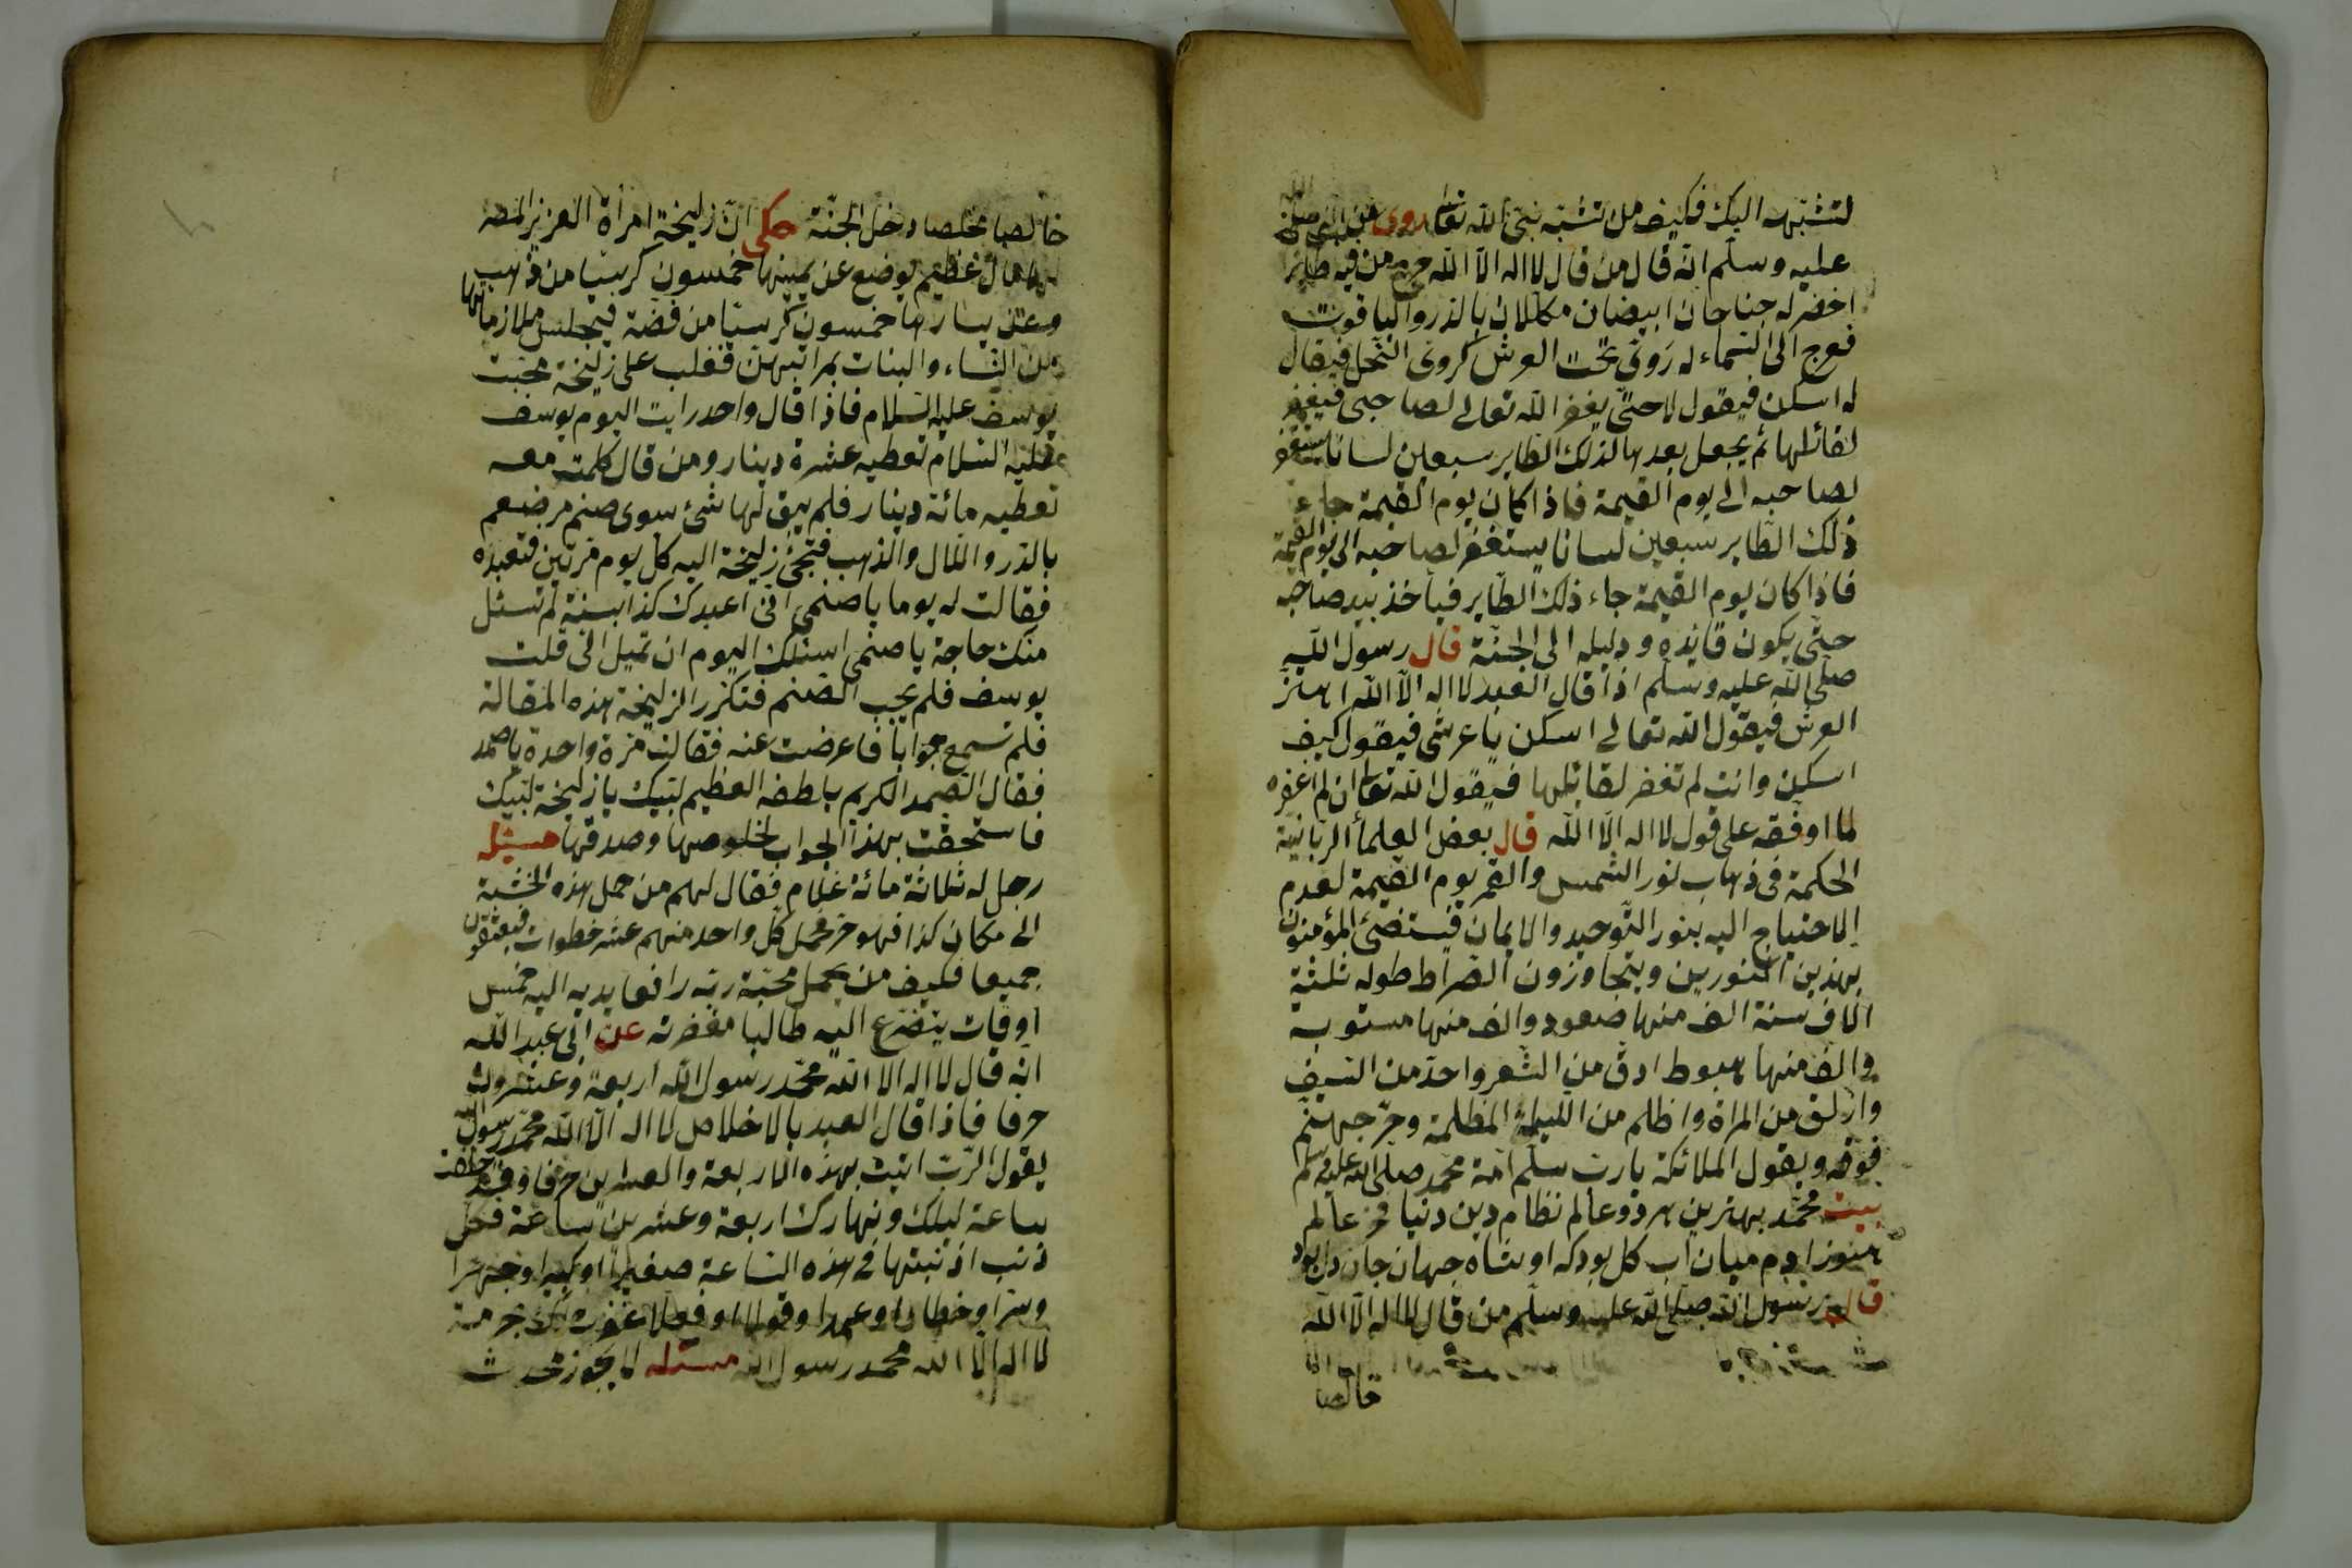 لتشبهه اليك فكيف من تشبّه نبىّ الله تعا روى عن النبى صلى الله
عليه وسلّم انّه قال من قال لا اله الّا الله خرج من فيه طائر
اخضر له جناحان ابيضان مكللان بالدّر والياقوت
فعرج الى السّماء له دَوىّ تحت العرش كدوى النّحل فيقال
له اسكن فيقول لا حتّى يغفر الله تعالى لصاحبى فيغفر
لقائلها ثم يجعل بعدها لذلك الطّاير سبعين لسانا يستغفر
لصاحبه الى يوم القيمة فاذا كان يوم القيمة جاء
ذلك الطّاير سبعين لسانا يستغفر لصاحبه الى يوم القيمة
فاذا كان يوم القيمة جاء ذلك الطّاير فياخذ بيد صاحبه
حتّى يكون قايده ودليله الى الجنّة قال رسول الله
صلّى الله عليه وسلّم اذا قال العبد لا اله الّا الله اهتز
العرش فيقول الله تعالى اسكن يا عرشى فيقول كيف
اسكن وانت لم تغفر لقائلها فيقول الله تعا ان لم اغفره
لما اوفقه على قول لا اله الّا الله قال بعض العلماء الربانية
الحكمة فى ذهاب نور الشّمس والقمر يوم القيمة لعدم
الاحتياج اليه بنور التّوحيد والايمان فيستضئ المؤمنون
بهذين النّورين ويتجاوزون الصّراط طوله ثلثة
الاف سنة الف منها صعود والف منها مستوية
والف منها هبوط ادقّ من الشّعر واحدّ من السّيف
وازلق من المراة واظلم من الليلة المظلمة وحرّ جهنّم
فوقه ويقول الملائكة يا ربّ سلّم امة محمّد صلى الله عليه وسلم
بيت محمّد بهترين هر دو عالم نظام دين دنيا فخر عالم
هنوز ادم ميان اب كل بود كه او شاه جهان جان دل بود
قال رسول الله صلّى الله عليه وسلّم من قال لا اله الّا الله
خالصا
خالصا مخلصا دخل الجنّة حكى انّ زليخة امرأة العزيز المصر
لها مال عظيم يوضع عن يمينها خمسون كرسيّا من ذهب
وعن يسارها خمسون كرسيّا من فضّة فيجلس ملازماتها
من النّساء والبنات بمراتبهنّ فغلب على زليخة محبّت
يوسف عليه السّلام فاذا قال واحد رايت اليوم يوسف
عليه السّلام تعطيه عشرة دينار ومن قال كلمت معه
تعطيه مائة دينار فلم يبق لها شئ سوى صنم مرصّع
بالدّر واللال والذهب فتجئ زليخة اليه كلّ يوم مرّتين فتعبده
فقالت له يوما يا صنمى انّى اعبدك كذا سنة لم تسئل
منك حاجة يا صنمى اسئلك اليوم ان تميل الىّ قلب
يوسف فلم يجب الصّنم فتكرّر الزليخة هذه المقالة
فلم تسمع جوابا فاعرضت عنه فقالت مرّة واحدة يا صمد
فقال الصّمد الكريم بلطفه العظيم لبّيك يا زليخة لبّيك
فاستحقّت بهذا الجواب لخلوصها وصدقها مسئله
رجل له ثلاثة مائة غلام فقال لهم من حمل هذه الخشبة
الى مكان كذا فهو حرّ فحمل كلّ واحد منهم عشر خطوات فيعتقون
جميعا فكيف من يحمل محبّة ربّه رافعا يديه اليه خمس
اوقات يتضرّع اليه طالبا مغفرته عن ابى عبد الله
انّه قال لا اله الا الله محمّد رسول الله اربعة وعشرون
حرفا فاذا قال العبد بالاخلاص لا اله الّا الله محمّد رسول الله
يقول الرّبّ اتيت بهذه الاربعة والعشرين حرفا وقد خلقت
ساعة ليلك ونهارك اربعة وعشرين ساعة فكلّ
ذنب اذنبتها فى هذه السّاعة صغيرا او كبيرا وجهرا
وسرّا وخطاء او عمدا وقولا او فعلا غفرت لك بحرمة
لا اله الّا الله محمد رسول الله مسئله لا يجوز محدث